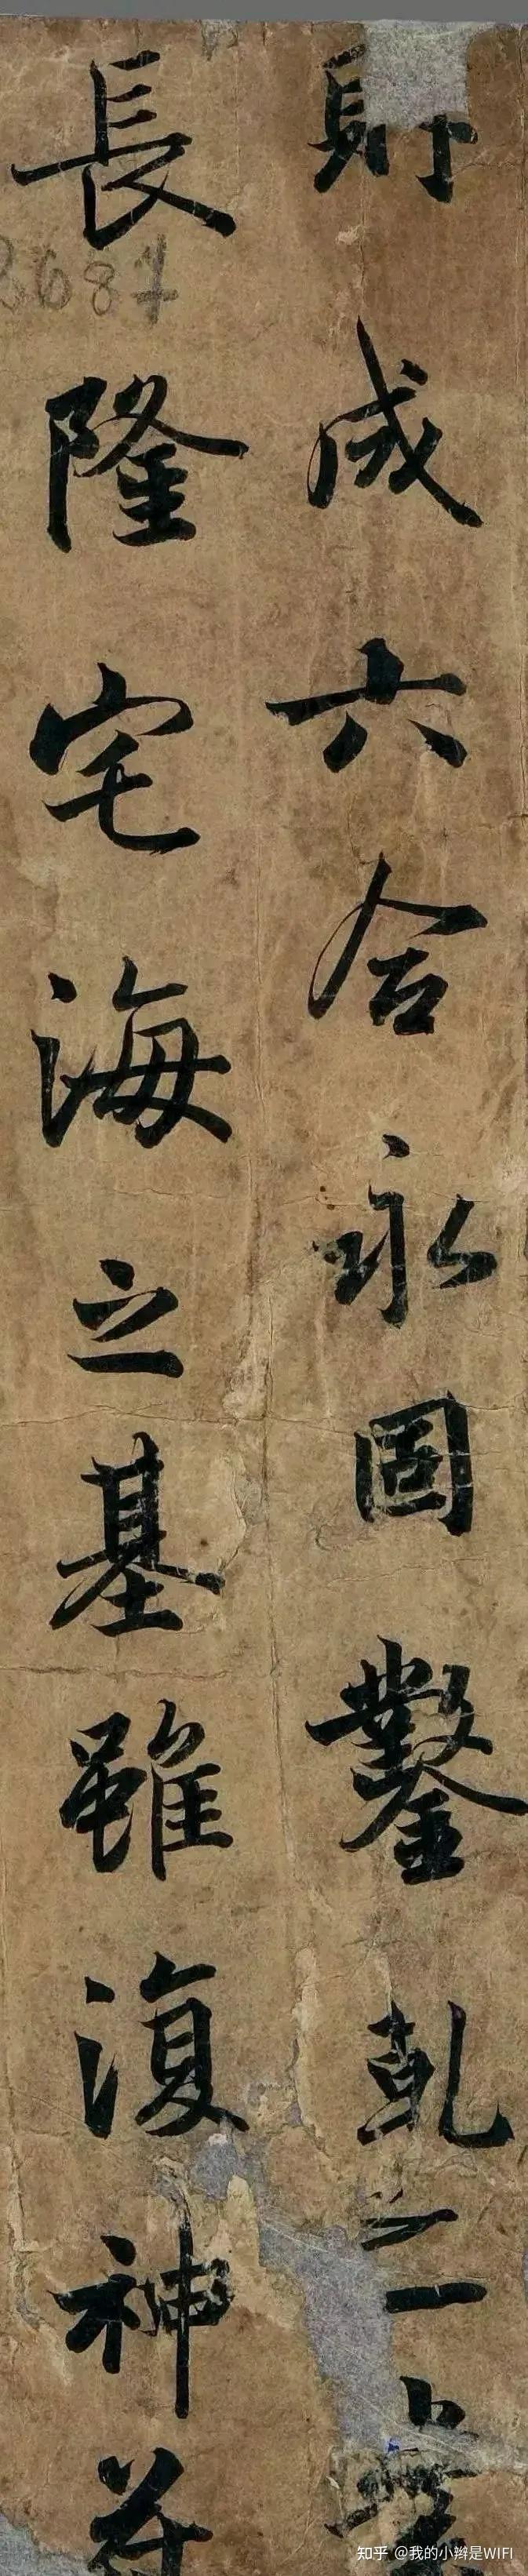 成六合永固鑿乹之
長隆宅海之基雖復神
知乎 @我的小辫是WIFI